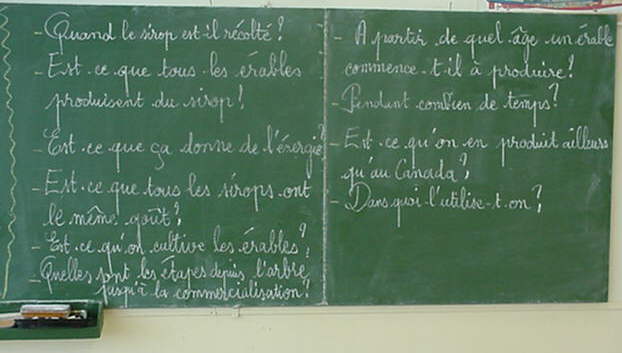 - Quand le sirop est-il récolté?
- Est-ce que tous les érables
produisent du sirop?
- Est-ce que ça donne de l'énergie?
- Est-ce que tous les sirops ont
le même goût?
- Est-ce qu'on cultive les érables?
- Quelles sont les étapes depuis l'arbre
jusqu'à la commercialisation?
- A partir de quel âge un érable
commence-t-il à produire?
- Pendant combien de temps?
- Est-ce qu'on en produit ailleurs
qu'au Canada?
- Dans quoi l'utilise-t-on?